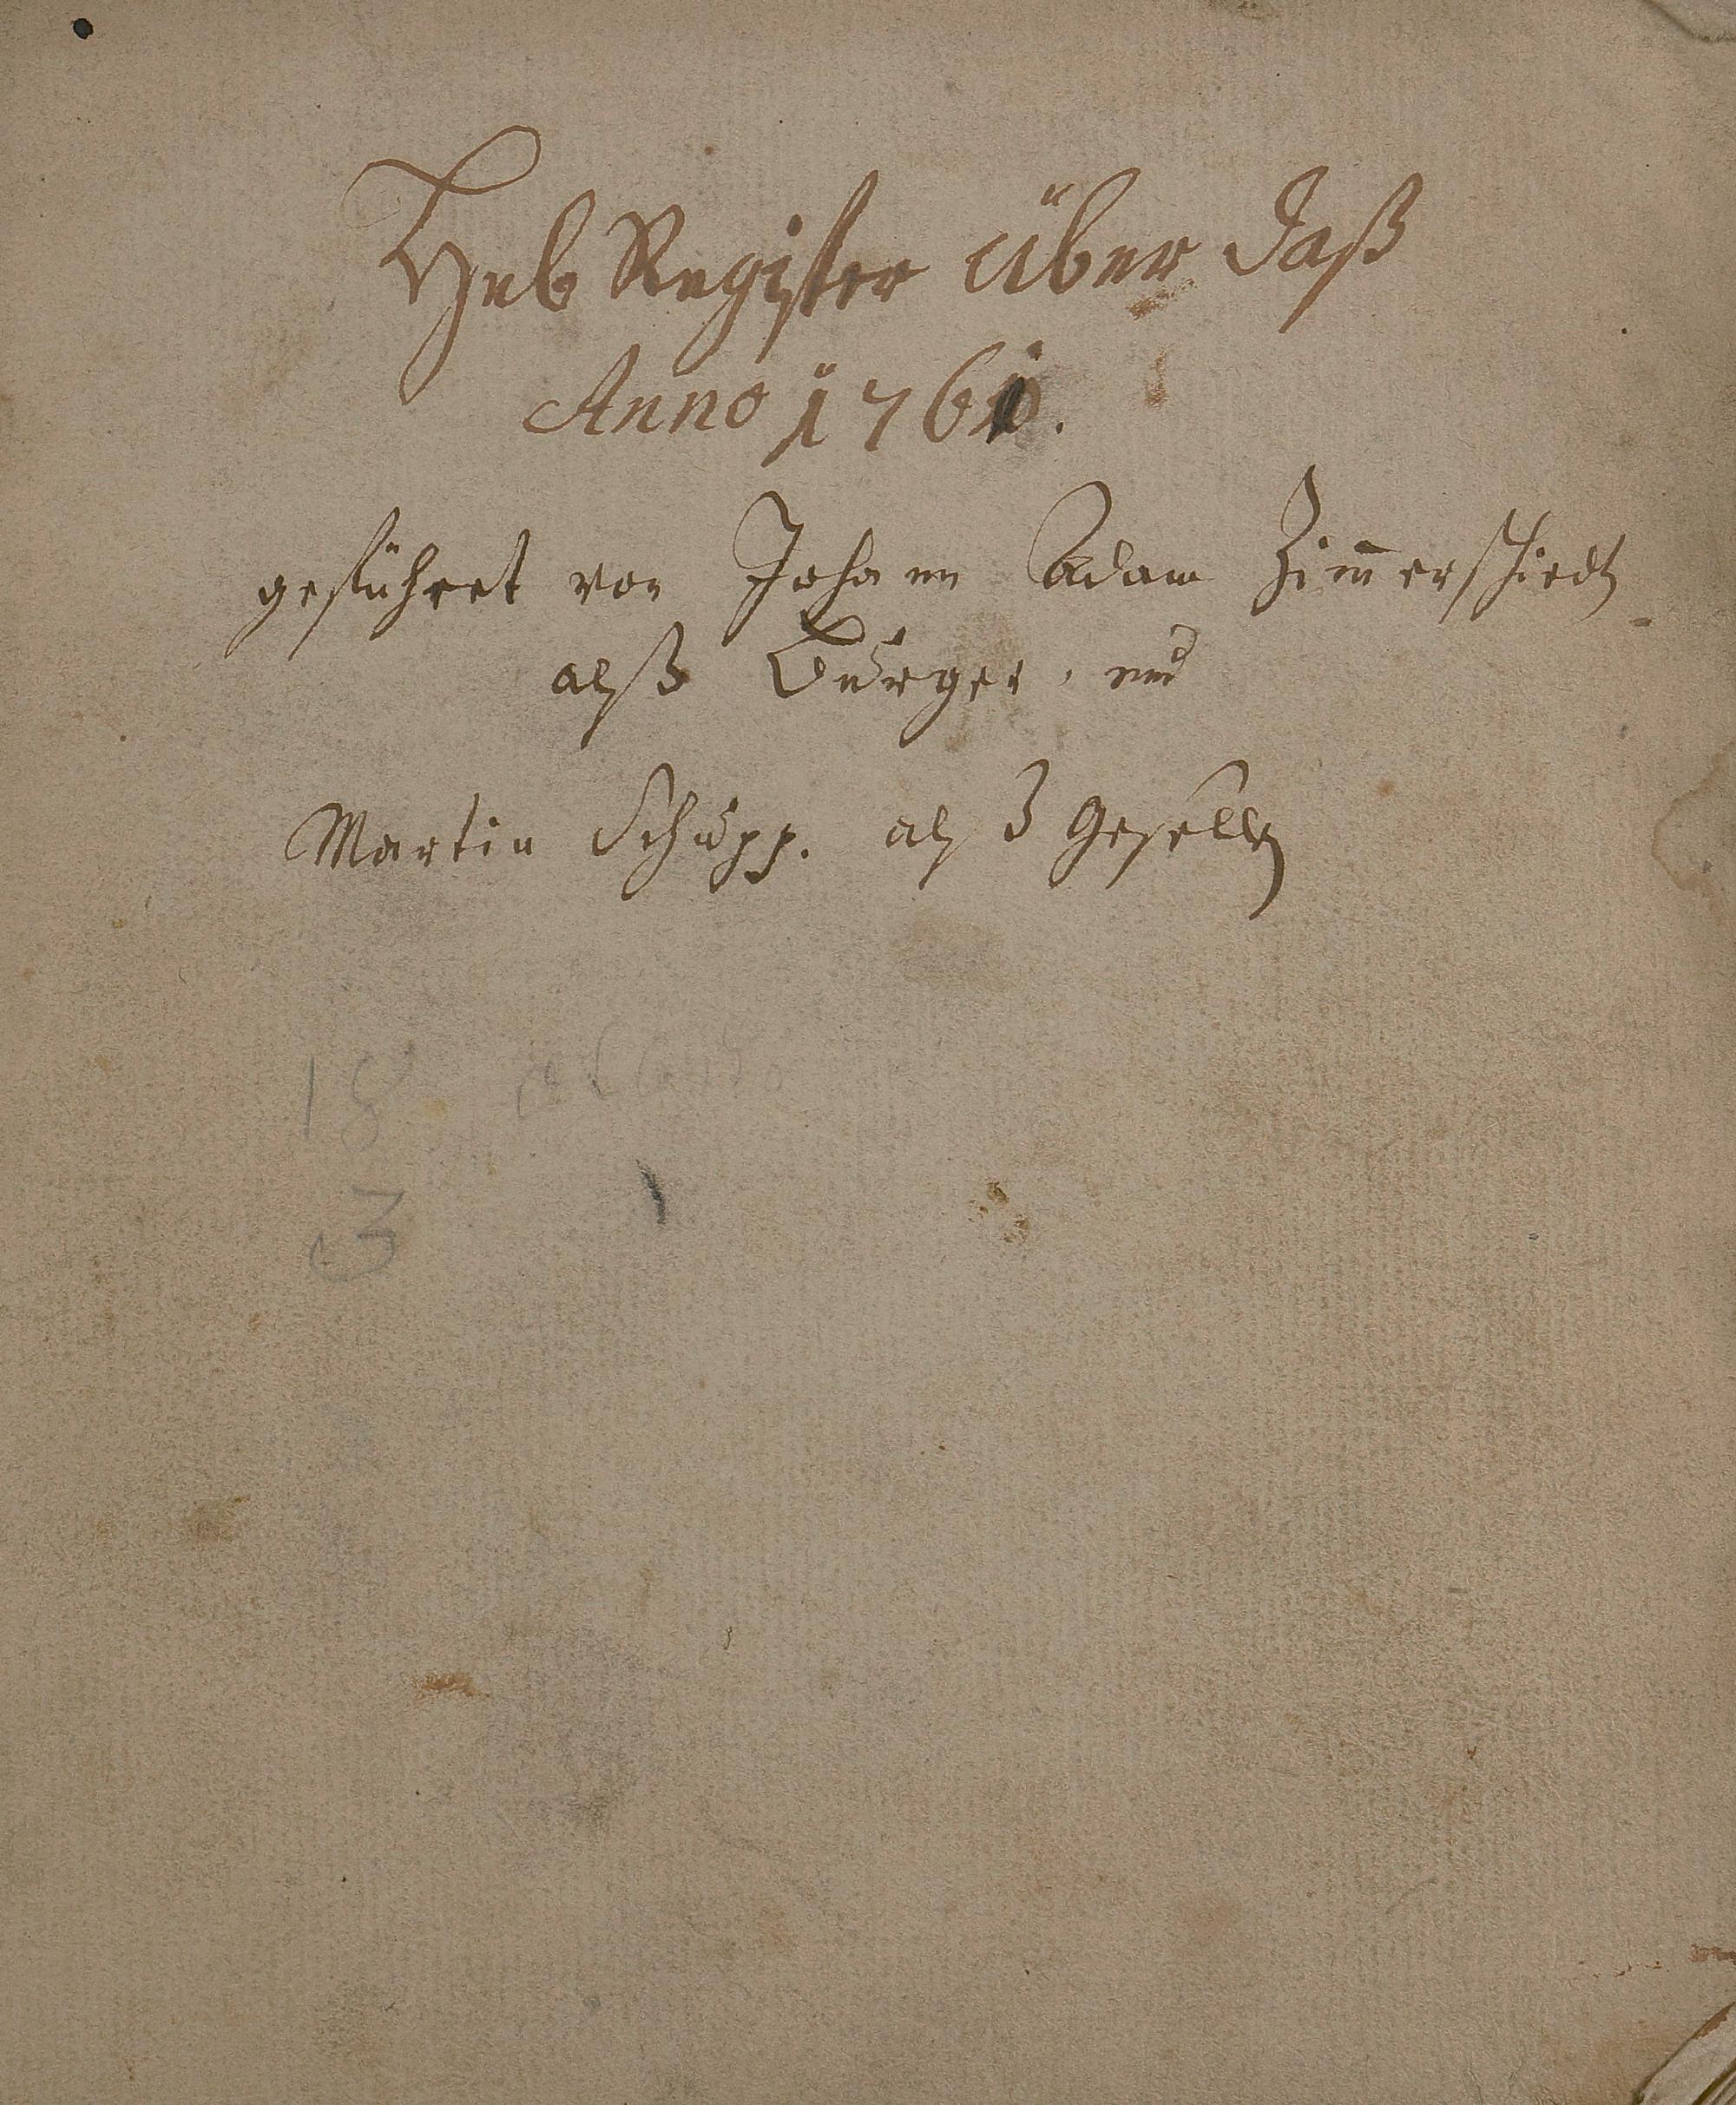 Heb Register über daß
Anno 1761.
geführet von Johann Adam Zim̄erschiedt
alß Burger, und
Martin Schupp. alß Gesellen
18
3